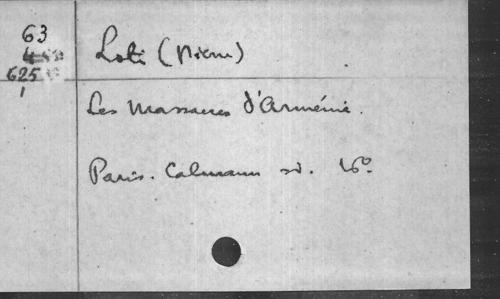 63
625
1
Loti (Pierre)
Les Massacres d'Arménie.
Paris. Calmann sd. 16º.